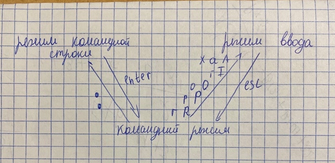 режим командной
строки
режим ввода
enter
:
x a A
i I
o O
r P
r R
esc
командный режим